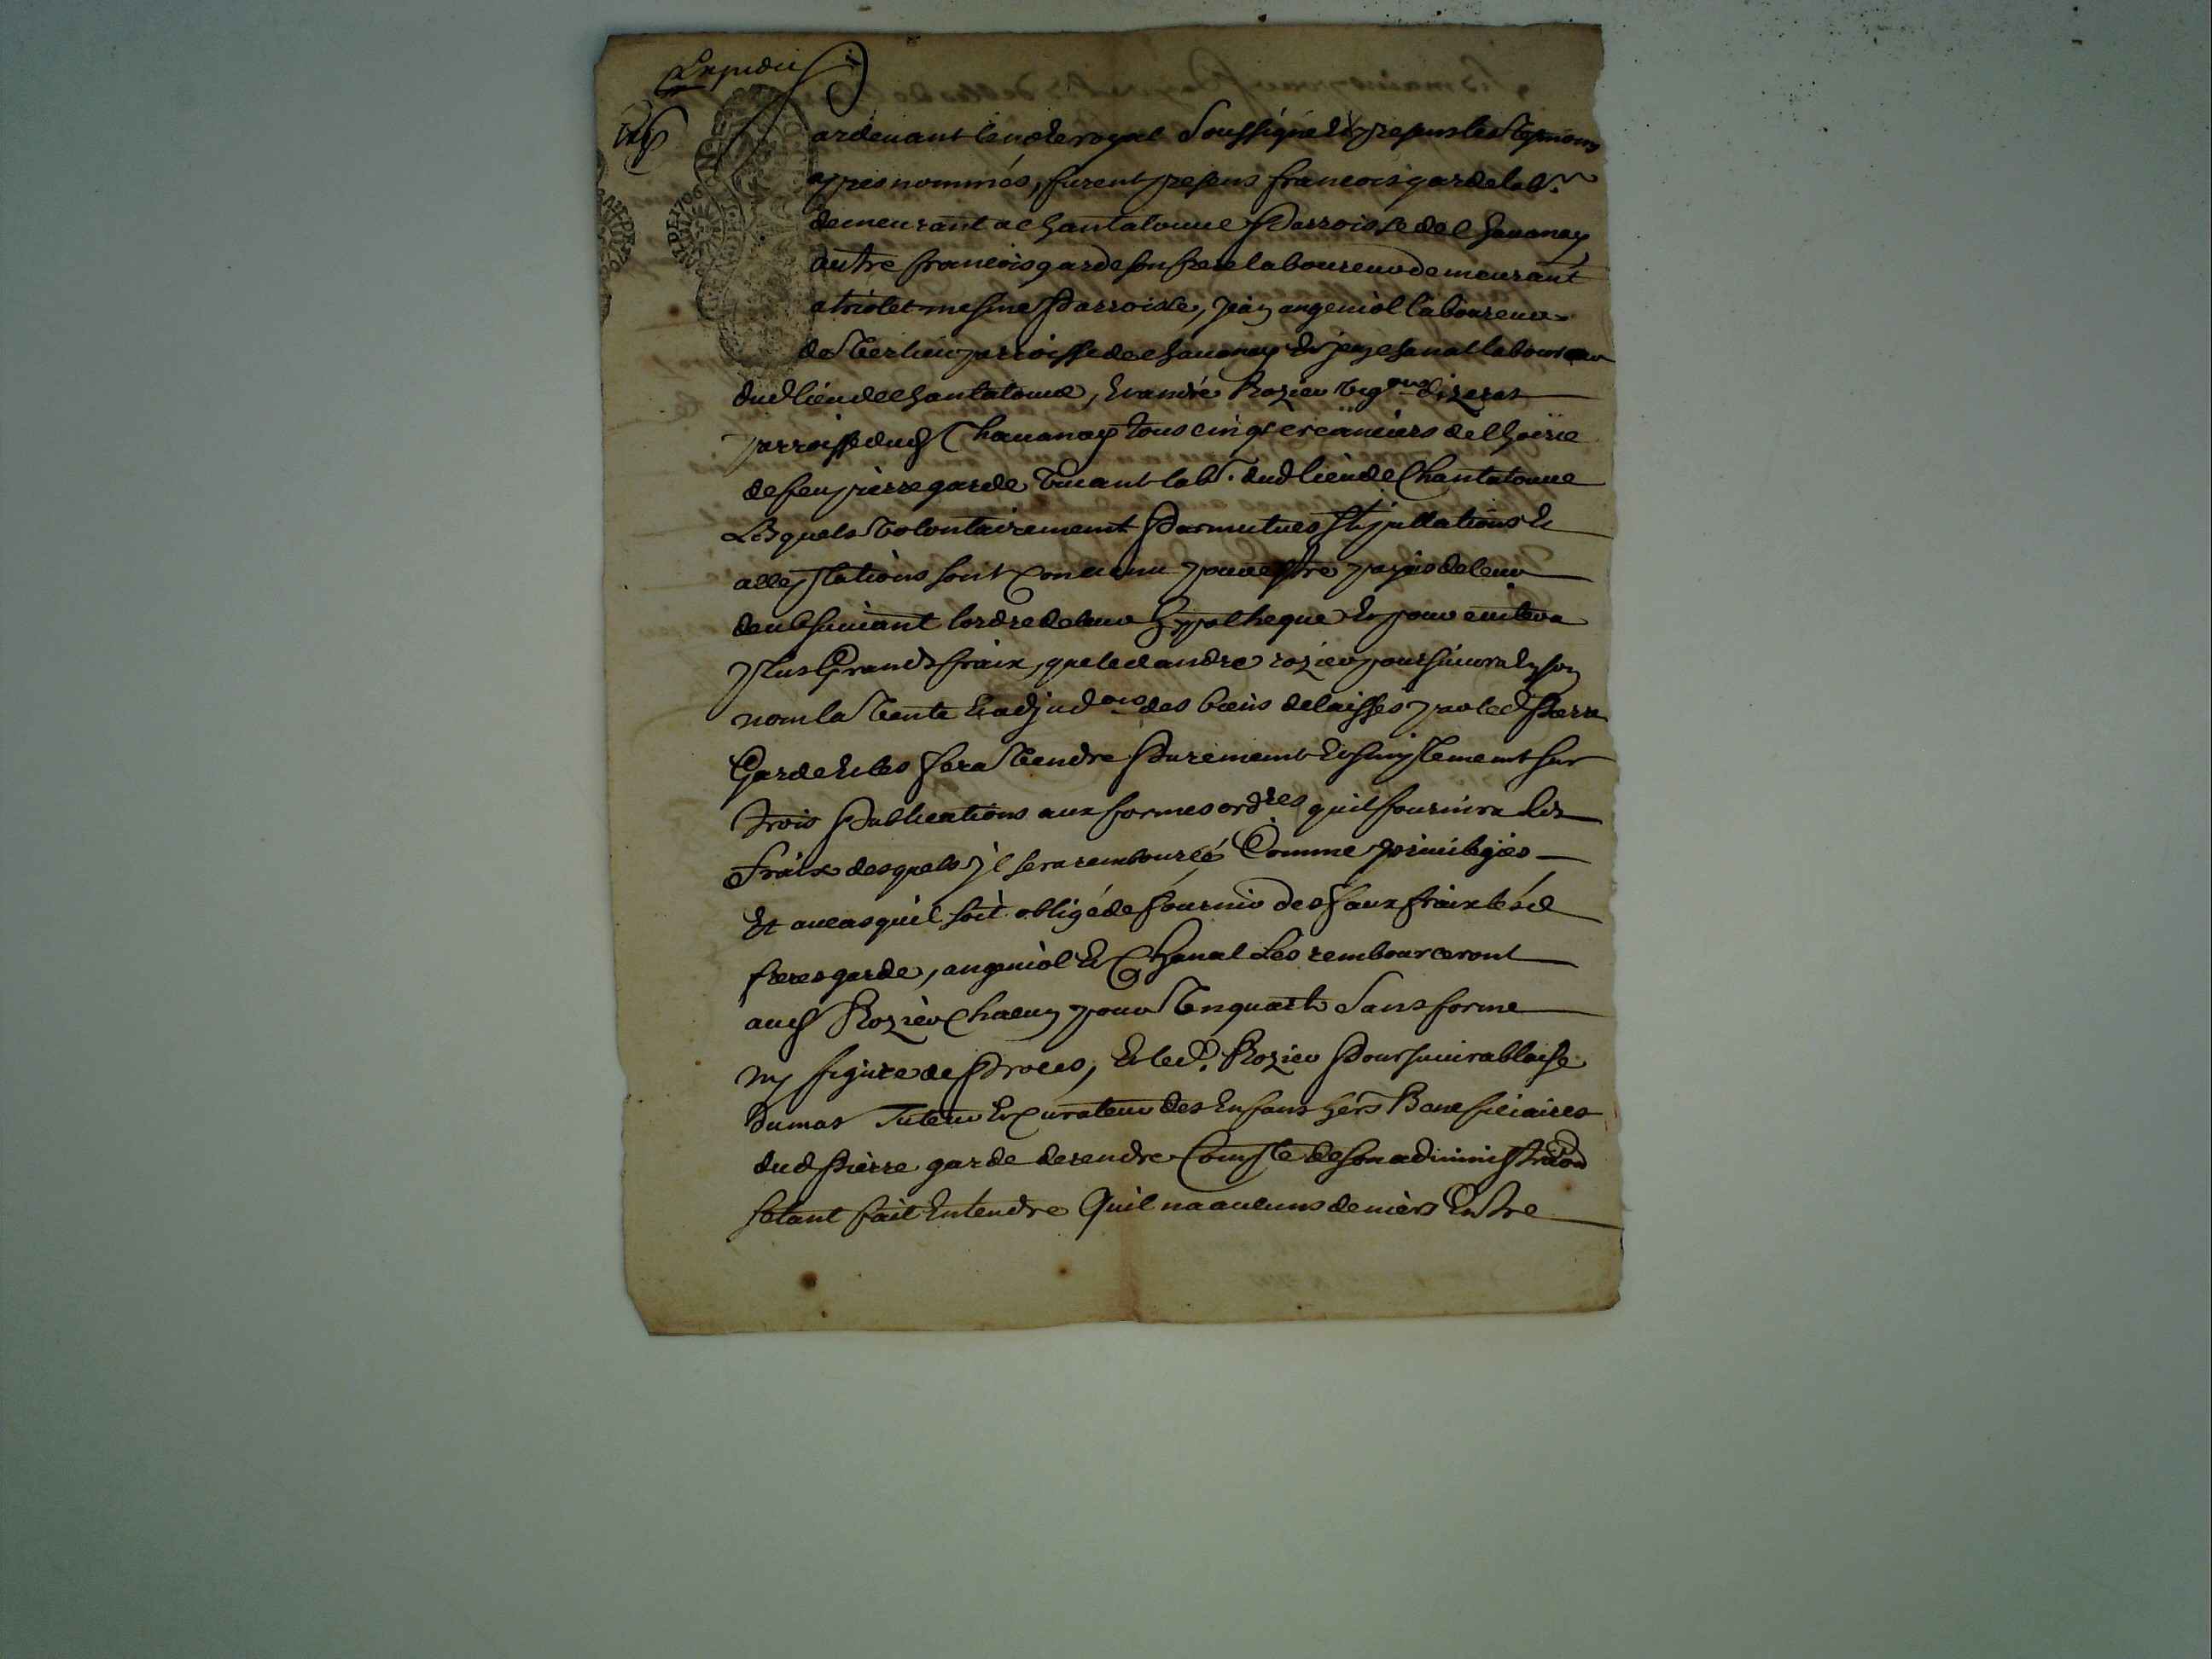 Expedié
Pardevant le note royal Soussigné Et presens les tesmoins
apres nommés, furent presens francois garde labr.
demeurant a Chantaloune Parroisse de Chauanay
autre francois garde son frere laboureur demeurant
a triolet mesme Parroisse, Jean angeniol laboureur
de Verlieu parroisse de Chauanay Et Jean Chanal laboureur
dud lieu de Chantaloune, Et andré Rozier vigon
parroisse dud Chauanay tous cinq creanciers de lhoirie
de feu pierre garde viuant labr. dud lieu de Chantaloune
Lesquels volontairement Par mutues stipullations Et
acceptations sont conuenu pour estre payés de leur
deub suiuant lordre de leur hypotheque Et pour euiter a
plus Grands fraix, que led andre rozier poursuiura En son
nom la vente Et adjudon des biens delaissés par led Pierre
Garde Et les fera vendre Purement Et simplement sur
trois Publications aux formes ordres quil fournira les
fraix desquels il sera remboursé Comme priuilegiés
Et au cas quil soit obligé de fournir des faux fraix lesd
freres garde, angeniol Et Chanal Les rembourceront
aud Rozier Chacun pour vn quart Sans forme
ny figure de Proces, Et led. Rozier Poursuiura blaise
dumas Tuteur Et Curateur des Enfans hers Beneficiaires
dud Pierre garde de rendre Compte de son administraon
setant fait Entendre Quil na aucuns deniers Entre